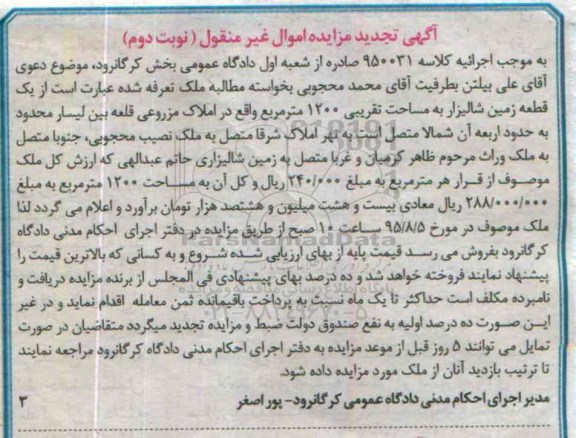 آگهی تجدید مزایده اموال غیر منقول (نوبت دوم)
به موجب اجرائیه کلاسه ۹۵۰۰۳۱ صادره از شعبه اول دادگاه عمومی بخش کرگانرود، موضوع دعوی
آقای علی بیلتن بطرفیت آقای محمد محجوبی بخواسته مطالبه ملک تعرفه شده عبارت است از یک
قطعه زمین شالیزار به مساحت تقریبی ۱۲۰۰ مترمربع واقع در املاک مزروعی قلعه بین لیسار محدود
به حدود اربعه آن شمالا متصل است به نهر املاک شرقا متصل به ملک نصیب محجوبی، جنوبا متصل
به ملک وراث مرحوم ظاهر کرمیان و غربا متصل به زمین شالیزاری حاتم عبدالهی که ارزش کل ملک
موصوف از قرار هر مترمربع به مبلغ ۲۴۰/۰۰۰ ریال و کل آن به مساحت ۱۲۰۰ مترمربع به مبلغ
۲۸۸/۰۰۰/۰۰۰ ریال معادی بیست و هشت میلیون و هشتصد هزار تومان برآورد و اعلام می گردد لذا
ملک موصوف در مورخ ۹۵/۸/۵ ساعت ۱۰ صبح از طریق مزایده در دفتر اجرای احکام مدنی دادگاه
کرگانرود بفروش می رسد قیمت پایه از بهای ارزیابی شده شروع و به کسانی که بالاترین قیمت را
پیشنهاد نمایند فروخته خواهد شد و ده درصد بهای پیشنهادی فی المجلس از برنده مزایده دریافت و
نامبرده مکلف است حداکثر تا یک ماه نسبت به پرداخت باقیمانده ثمن معامله اقدام نماید و در غیر
این صورت ده درصد اولیه به نفع صندوق دولت ضبط و مزایده تجدید میگردد متقاضیان در صورت
تمایل می توانند ۵ روز قبل از موعد مزایده به دفتر اجرای احکام مدنی دادگاه کرگانرود مراجعه نمایند
تا ترتیب بازدید آنان از ملک مورد مزایده داده شود.
مدیر اجرای احکام مدنی دادگاه عمومی کرگانرود- پور اصغر ۳
ParsNamadData